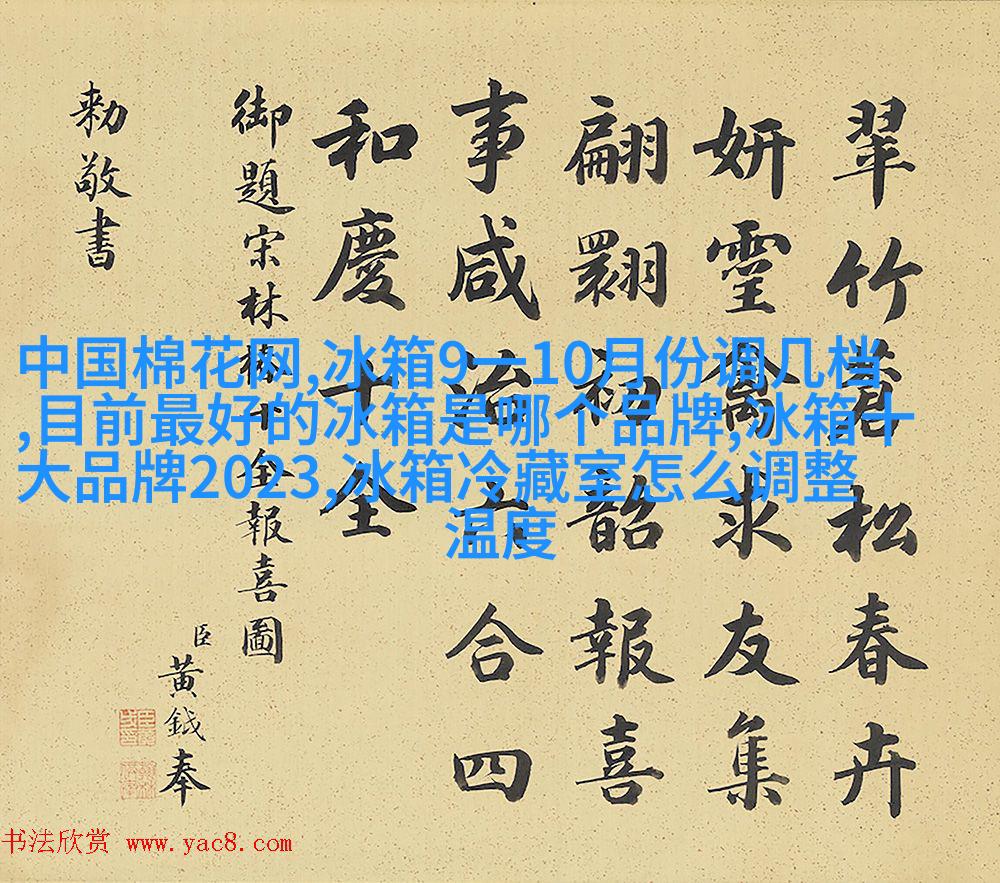 翠竹蒼松春卉
妍靈禽求友集
翩翾初韶報喜
事咸五合四
和慶十全
御題宋林椿十全報喜圖
臣黃鉞奉
勑敬書
中国棉花网,冰箱9一10月份调几档
,目前最好的冰箱是哪个品牌,冰箱十
大品牌2023,冰箱冷藏室怎么调整
温度
书法欣赏 www.yac8.com